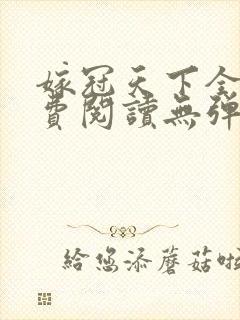 嫁冠天下全
費閱讀無彈
給您添蘑菇啦